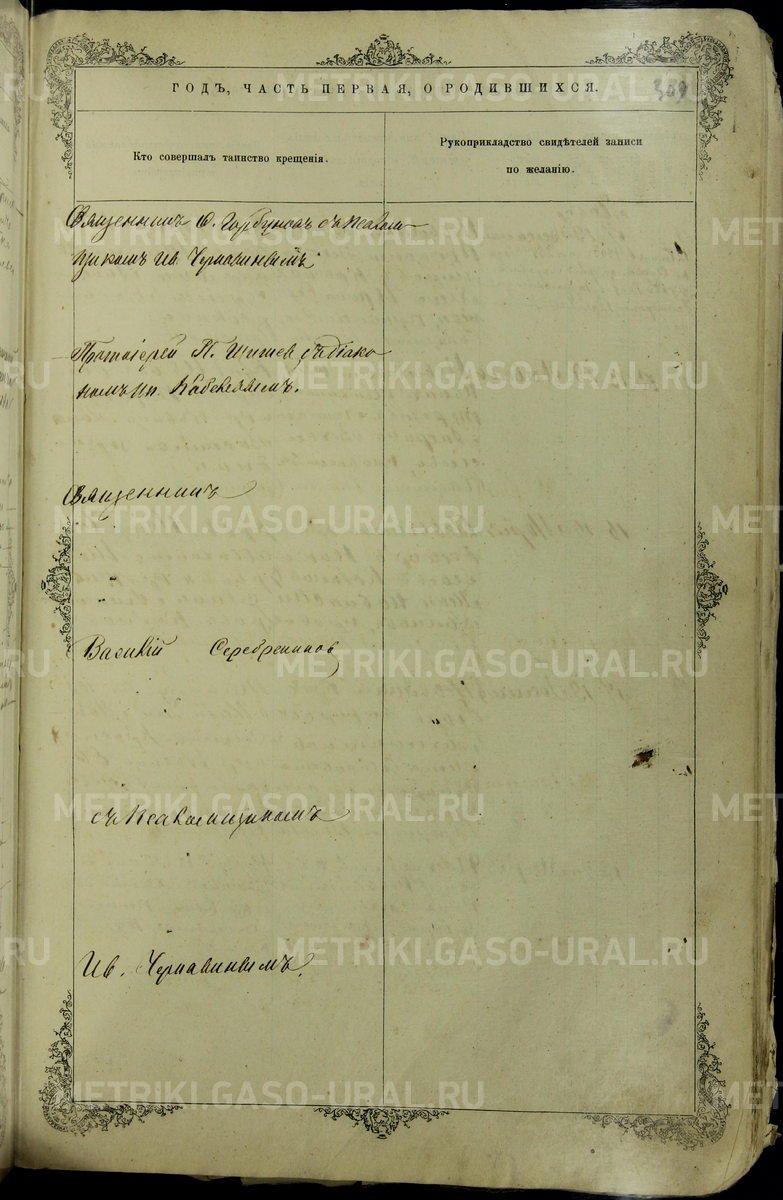 ГОДЪ, ЧАСТЬ ПЕРВАЯ, О РОДИВШИХСЯ.
Кто совершалъ таинство крещенія.
Рукоприкладство свидѣтелей записи
по желанію.
Священникъ Ѳ. Горбуновъ съ псалом-
щикомъ Ив. Чернавинымъ
Протоіерей П. Шишев съ діако
номъ
Священникъ
Василій Серебренников
съ Псаломщикомъ
Ив. Чернавинымъ.
METRIKI.GASO-URAL.RU